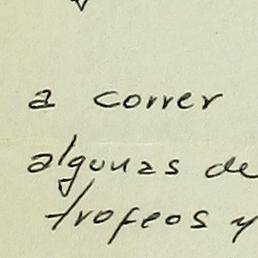 a correr
algunas de
trofeos y